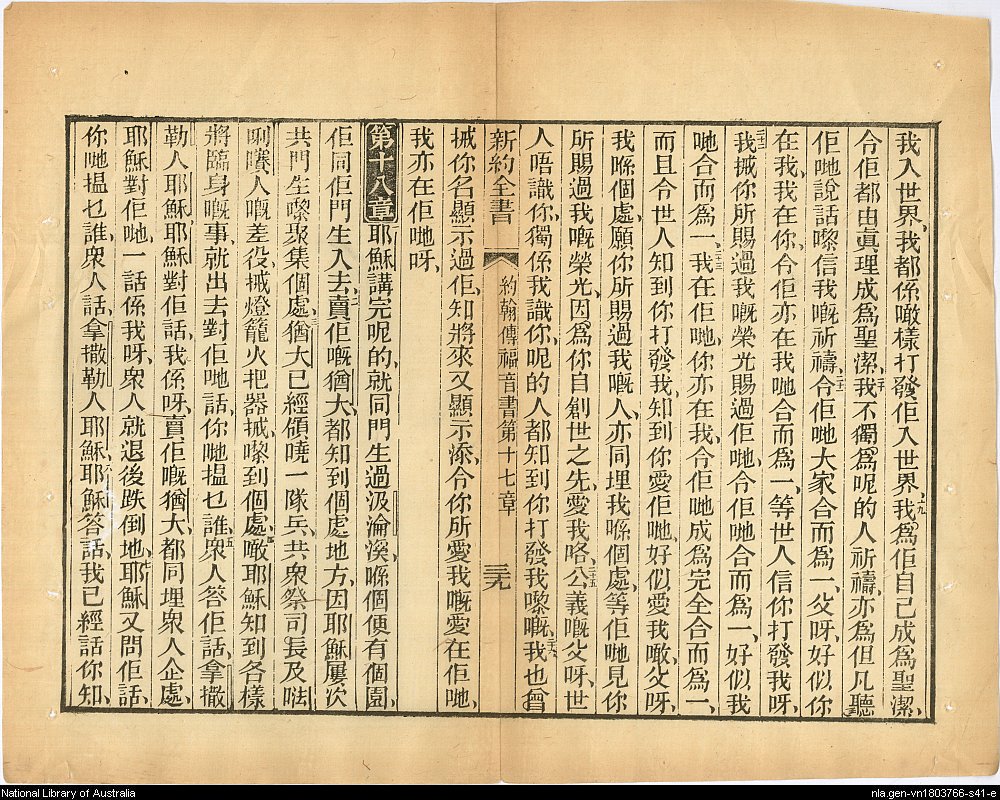 我入世界、我都係噉樣打發佢入世界、十九我爲佢自己成爲聖潔、
令佢都由眞理成爲聖潔、二十我不獨爲呢的人祈禱、亦爲但凡聽
佢哋說話嚟信我嘅祈禱、二十一令佢哋大家合而爲一、父呀、好似你
在我、我在你、令佢亦在我哋合而爲一、等世人信你打發我呀、
二十二我搣你所賜過我嘅榮光賜過佢哋、令佢哋合而爲一、好似我
哋合而爲一、二十三我在佢哋、你亦在我、令佢哋成爲完全合而爲一、
而且令世人知到你打發我、知到你愛佢哋、好似愛我噉、父呀、
我喺個處、願你所賜過我嘅人、亦同埋我喺個處、等佢哋見你
所賜過我嘅榮光、因爲你自創世之先、愛我咯、二十五公義嘅父呀、世
人唔識你、獨係我識你、呢的人都知到你打發我嚟嘅、二十六我也曾
新約全書 約翰傳福音書第十七章 三九
搣你名顯示過佢、知將來又顯示添、令你所愛我嘅愛在佢哋、
我亦在佢哋呀、
第十八章 耶穌講完呢的、就同門生過汲淪溪、喺個便有個園、
佢同佢門生入去、二賣佢嘅猶大、都知到個處地方、因耶穌屢次
共門生嚟聚集個處、三猶大已經領曉一隊兵、共衆祭司長及𠵽
唎嚽人嘅差役、搣燈籠火把器械、嚟到個處、四噉耶穌知到各樣
將臨身嘅事、就出去對佢哋話、你哋搵乜誰、五衆人答佢話、拿撒
勒人耶穌、耶穌對佢話、我係呀、賣佢嘅猶大、都同埋衆人企處、
六耶穌對佢哋、一話係我呀、衆人就退後跌倒地、七耶穌又問佢話、
你哋搵乜誰、衆人話、拿撒勒人耶穌、八耶穌答話、我已經話你知、